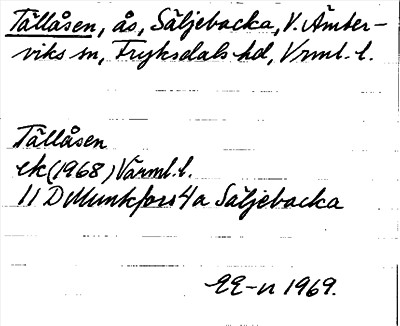 Tällåsen, ås, Säljebacka, V. Ämter-
viks sn, Fryksdals hd, Vrml. l.
Tällåsen
ek (1968) Värml. l.
11 D Munkfors 4a Säljebacka
1969.